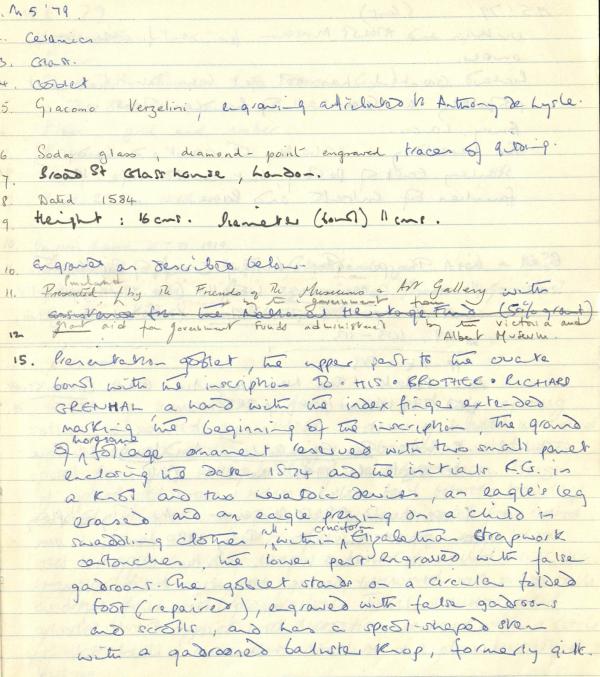 M 5 '79.
Ceramics
3. Glass.
4. Goblet
5 Giacomo Verzelini, engraving attributed to Anthony de Lysle.
6 Soda glass, diamond-point engraved, traces of gilding.
7. Broad St Glasshouse, London.
8 Dated 1584
9 Height : 16 cms. Diameter (bowl) 11 cms.
10. Engraved as described below.
Purchased
11. Presented by The Friends of The Museums & Art Gallery with
by the government from
assistance from the National Heritage Fund (50% grant)
12. grant aid for government funds administered by the Victoria and
Albert Museum.
15. Presentation goblet, the upper part to the ovate
bowl with the inscription TO • HIS • BROTHER • RICHARD
GRENHAL, a hand with the index finger extended
marking the beginning of the inscription The ground
of foliage ornament reserved with two small panels
enclosing the date 1574 and the initials R.G. in
a Knot and two heraldic devices, an eagle's leg
erased and an eagle preying on a child in
all cruciform
swaddling clothes, within Elizabethan strapwork
cartouches, the lower part engraved with false
gadroons. The goblet stands on a circular folded
foot (repaired), engraved with false gadroons
and scrolls, and has a spool-shaped stem
with a gadrooned baluster knop, formerly gilt.